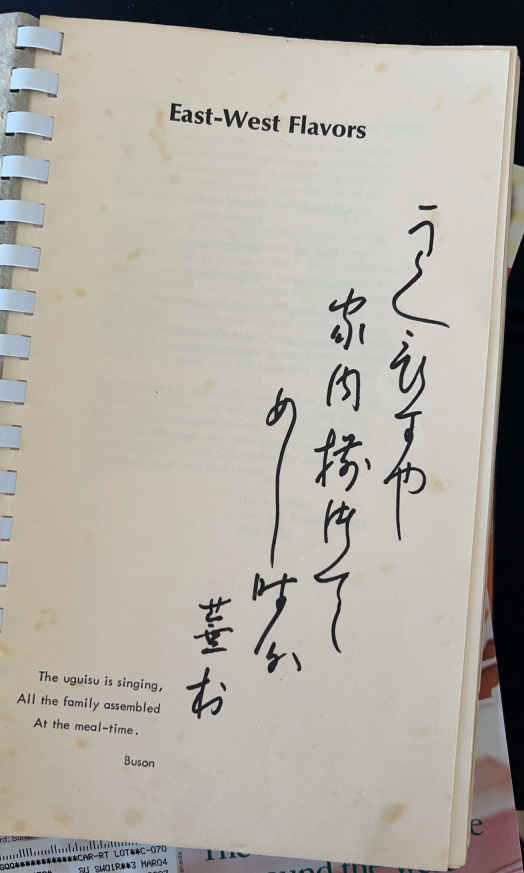 East-West Flavors
うくひすや
家内揃うて
めし時分
蕪村
The uguisu is singing,
All the family assembled
At the meal-time.
Buson
CAR-RT LOT**C-070
MAR04
The
the